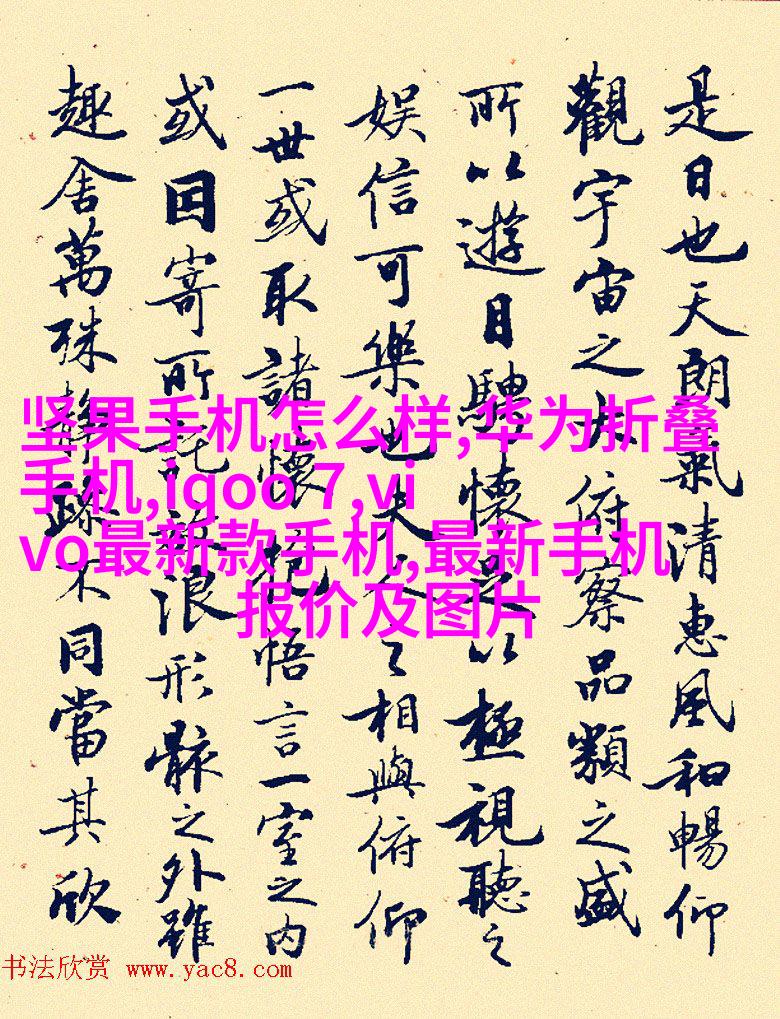 是日也天朗氣清惠風和暢仰
觀宇宙之大俯察品類之盛
所以遊目騁懷足以極視聽之
娛信可樂也夫人之相與俯仰
一世或取諸懷抱悟言一室之内
或因寄所託放浪形骸之外雖
趣舍萬殊靜躁不同當其欣
坚果手机怎么样,华为折叠
手机,iqoo 7,vi
vo最新款手机,最新手机
报价及图片
书法欣赏 www.yac8.com